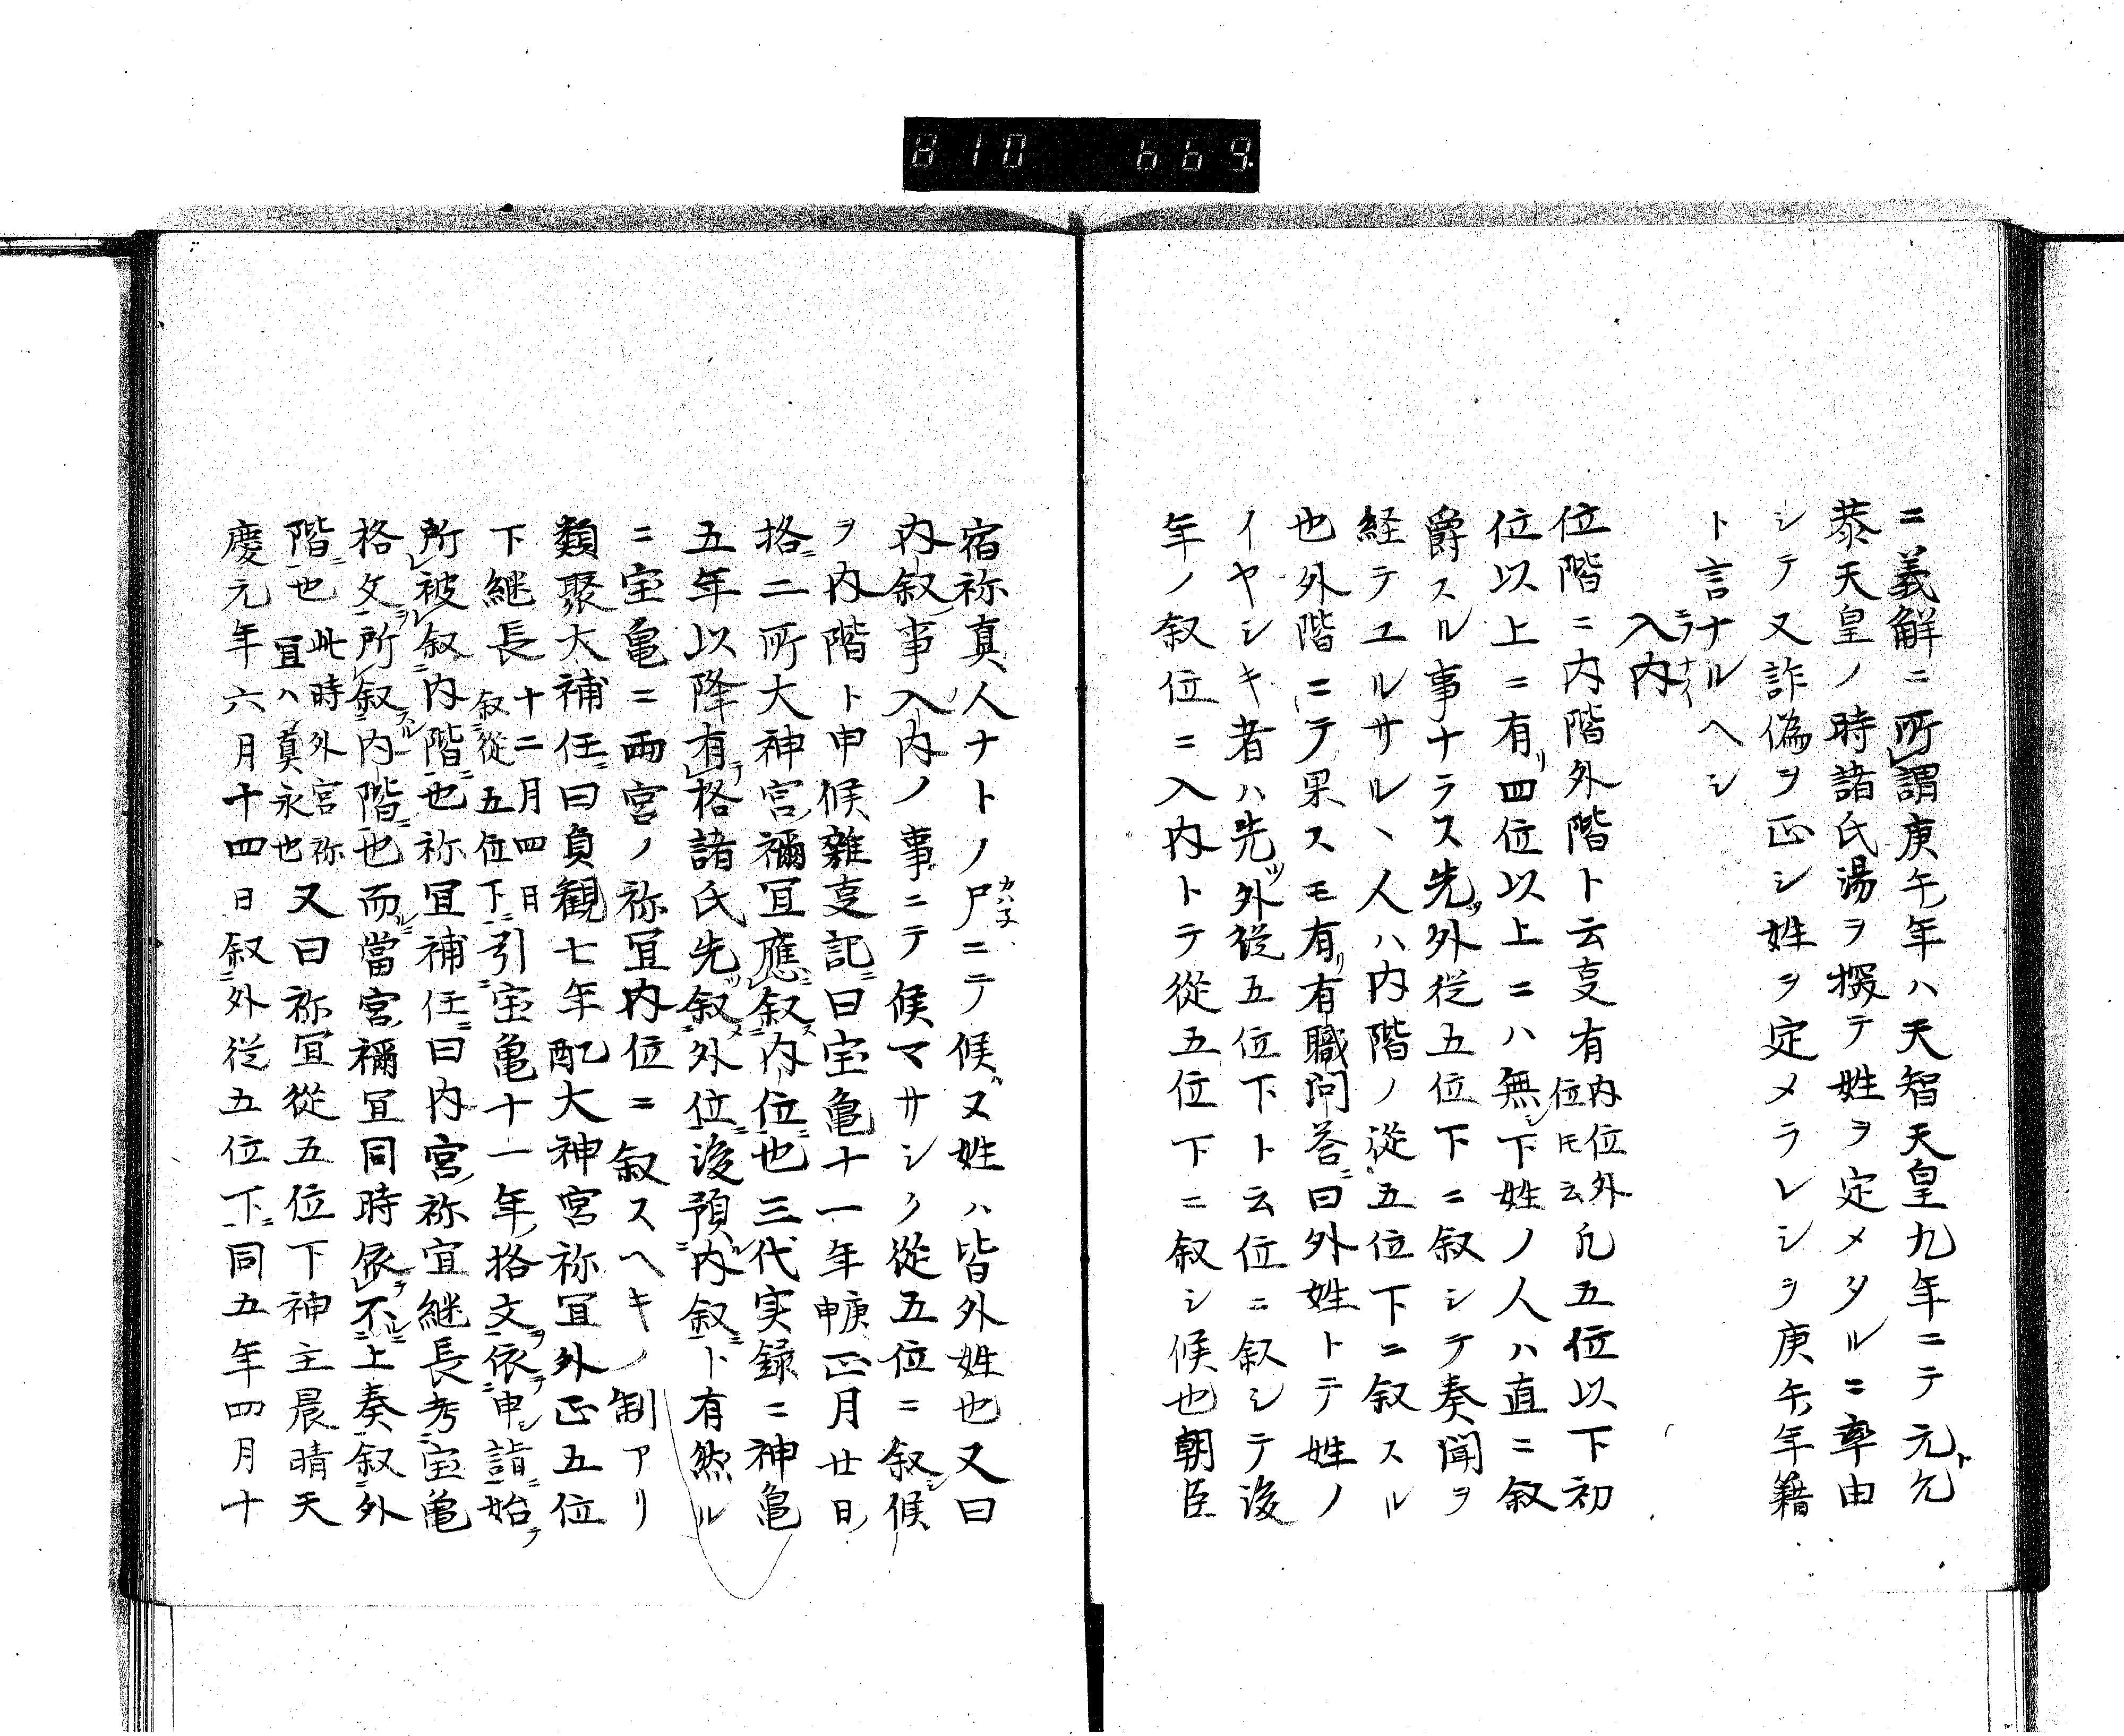 810 669
ニ義解ニ所謂庚午年ハ天智天皇九年ニテ元允
恭天皇ノ時諸氏湯ヲ探テ姓ヲ定メタルニ率由
シテ又詐偽ヲ正シ姓ヲ定メラレシヲ庚午年籍
ト言ナルヘシ
入内
位階ニ内階外階ト云叓有内位外位氏云凢五位以下初
位以上ニ有四位以上ニハ無下姓ノ人ハ直ニ叙
爵スル事ナラス先外従五位下ニ叙シテ奏聞ヲ
経テユルサルヽ人ハ内階ノ從五位下ニ叙スル
也外階ニテ果スモ有有職問荅曰外姓トテ姓ノ
イヤシキ者ハ先外従五位下ト云位ニ叙シテ後
年ノ叙位ニ入内トテ從五位下ニ叙シ候也朝臣
宿祢真人ナトノ尸ニテ候ヌ姓ハ皆外姓也又曰
内叙事入内ノ事ニテ候マサシク從五位ニ叙候
ヲ内階ト申候雜叓記曰宝亀十一年庚申正月廿日
格二所大神宮禰冝應叙内位也三代実録ニ神亀
五年以降有格諸氏先叙外位後預内叙ト有然ル
ニ宝亀ニ両宮ノ祢冝内位ニ叙スヘキノ制アリ
類聚大補任曰貞観七年配大神宮祢冝外正五位
下継長十二月四日叙從五位下引宝亀十一年格文依申請始
所被叙内階也祢冝補任曰内宮祢宜継長考宝亀
格文所叙内階也而當宮禰冝同時依不上奏叙外
階也此時外宮祢冝ハ真永也又曰祢冝從五位下神主晨晴天
慶元年六月十四日叙外従五位下同五年四月十